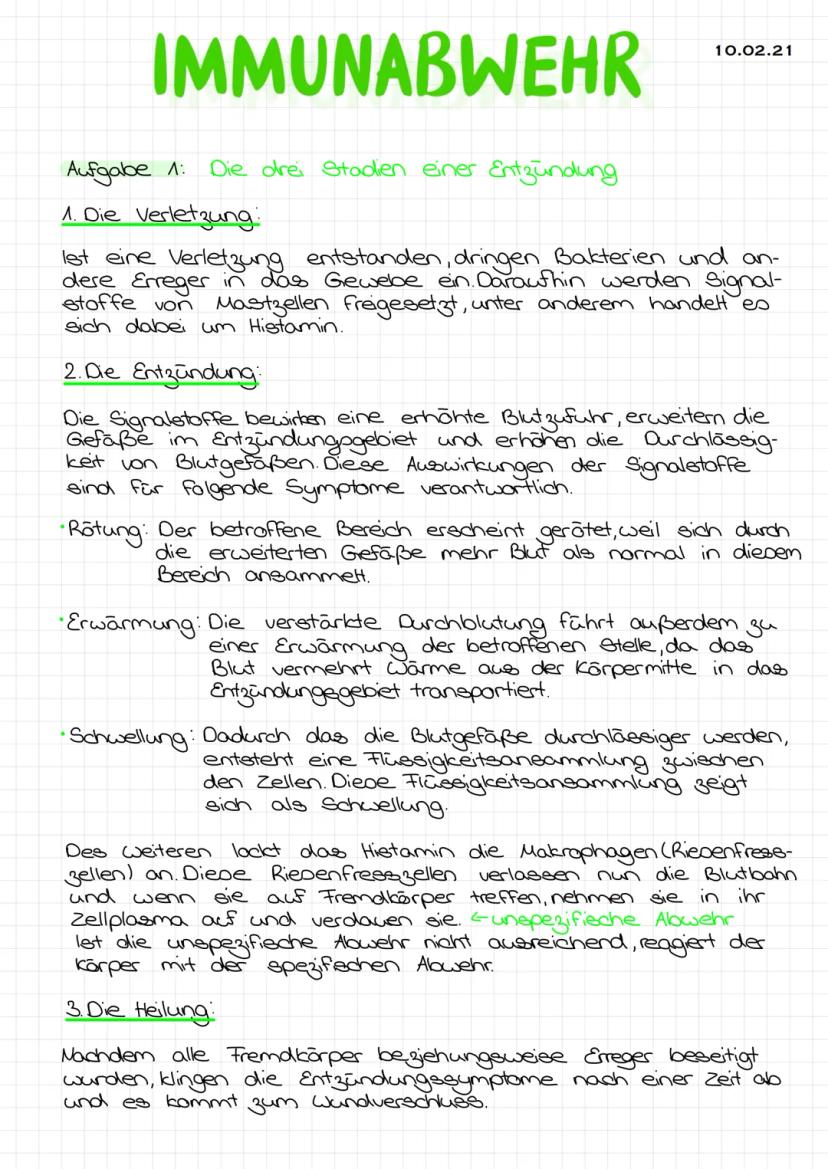 IMMUNABWEHR
10.02.21
Aufgabe 1: Die drei Stadien einer Entzündung
1. Die Verletzung:
Ist eine Verletzung entstanden, dringen Bakterien und an-
dere Erreger in das Gewebe ein. Daraufhin werden Signal-
stoffe von Mastzellen freigesetzt, unter anderem handelt es
sich dabei um Histamin.
2. Die Entzündung:
Die Signalstoffe bewirken eine erhöhte Blutzufuhr, erweitern die
Gefäße im Entzündungsgebiet und erhöhen die Durchlässig-
keit von Blutgefäßen. Diese Auswirkungen der Signalstoffe
sind für folgende Symptome verantwortlich.
· Rötung: Der betroffene Bereich erscheint gerötet, weil sich durch
die erweiterten Gefäße mehr Blut als normal in diesem
Bereich ansammelt.
· Erwärmung: Die verstärkte Durchblutung führt außerdem zu
einer Erwärmung der betroffenen Stelle, da das
Blut vermehrt Wärme aus der Körpermitte in das
Entzündungsgebiet transportiert.
· Schwellung: Dadurch das die Blutgefäße durchlässiger werden,
entsteht eine Flüssigkeitsansammlung zwischen
den Zellen. Diese Flüssigkeitsansammlung zeigt
sich als Schwellung.
Des weiteren lockt das Histamin die Makrophagen (Riesenfress-
zellen) an. Diese Riesenfresszellen verlassen nun die Blutbahn
und wenn sie auf Fremdkörper treffen, nehmen sie in ihr
Zellplasma auf und verdauen sie. ← unspezifische Abwehr
Ist die unspezifische Abwehr nicht ausreichend, reagiert der
Körper mit der spezifischen Abwehr.
3. Die Heilung:
Nachdem alle Fremdkörper beziehungsweise Erreger beseitigt
wurden, klingen die Entzündungssymptome nach einer Zeit ab
und es kommt zum Wundverschluss.